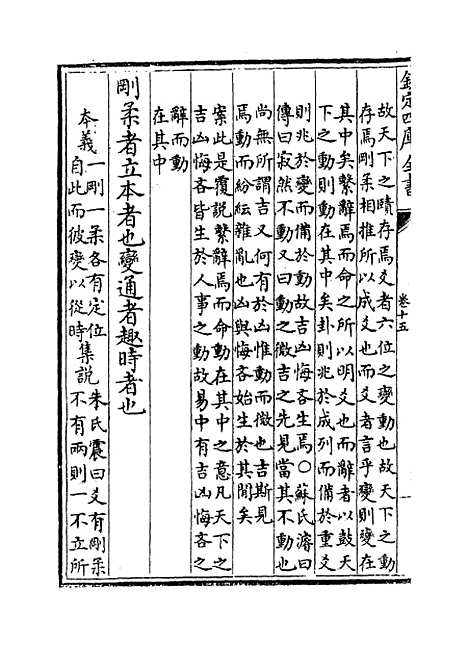 欽定四庫全書
卷十五
故天下之賾存焉爻者六位之變動也故天下之動
存焉剛柔相推所以成爻也而爻者言乎變則變在
其中矣繫辭焉而命之所以明爻也而辭者以鼓天
下之動則動在其中矣卦則兆於成列而備於重爻
則兆於變而備於動故吉凶悔吝生焉○蘇氏濬曰
傳曰寂然不動又曰動之微吉之先見當其不動也
尚無所謂吉又何有於凶惟動而微也吉斯見
焉動而紛紜雜亂也凶與悔吝始生於其間矣
案此是覆說繫辭焉而命動在其中之意凡天下之
吉凶悔吝皆生於人事之動故易中有吉凶悔吝之
辭而動
在其中
剛柔者立本者也變通者趣時者也
本義一剛一柔各有定位
自此而彼變以從時集說朱氏震曰爻有剛柔
不有兩則一不立所